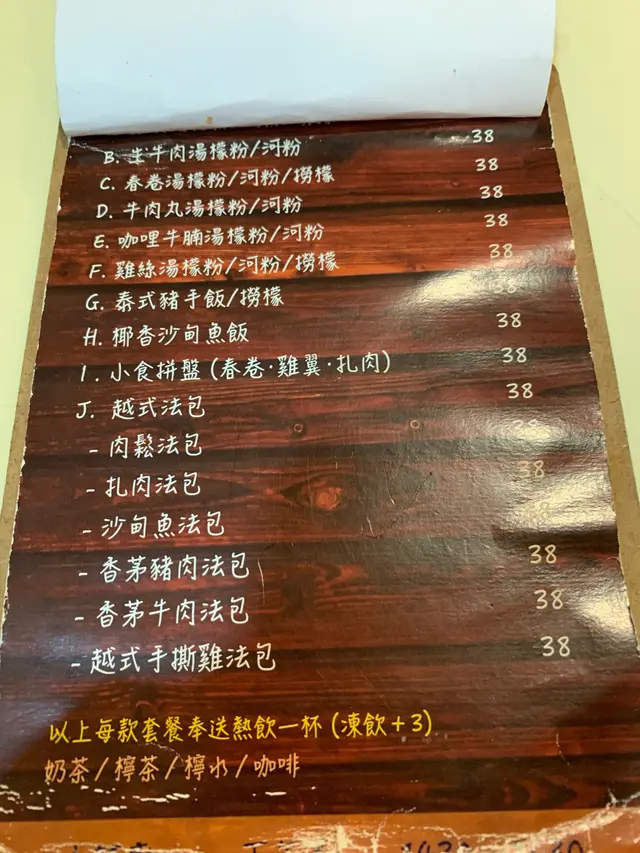 B. 生牛肉湯檬粉/河粉 38
C. 春卷湯檬粉/河粉/撈檬 38
D. 牛肉丸湯檬粉/河粉 38
E. 咖哩牛腩湯檬粉/河粉 38
F. 雞絲湯檬粉/河粉/撈檬 38
G. 泰式豬手飯/撈檬 38
H. 椰香沙甸魚飯 38
I. 小食拼盤 (春卷·雞翼·扎肉) 38
J. 越式法包 38
- 肉鬆法包 38
- 扎肉法包 38
- 沙甸魚法包
- 香茅豬肉法包 38
- 香茅牛肉法包 38
- 越式手撕雞法包 38
以上每款套餐奉送熱飲一杯 (凍飲+3)
奶茶/檸茶/檸水/咖啡